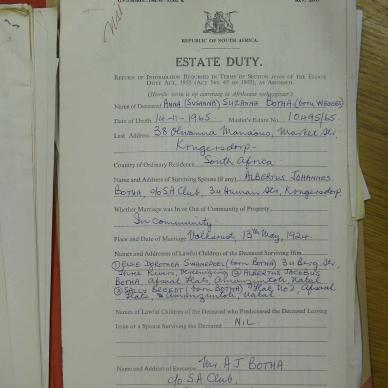 REPUBLIC OF SOUTH AFRICA.
ESTATE DUTY.
RETURN OF INFORMATION REQUIRED IN TERMS OF SECTION seven OF THE ESTATE
DUTY ACT, 1955 (ACT No. 45 OF 1955), AS AMENDED.
(Hierdie vorm is op aanvraag in Afrikaans verkrygbaar.)
Name of Deceased ANNA (SUSANNA) SUZANNA BOTHA (born
Date of Death 14-11-1965 Master's Estate No. 10495/65
Last Address 38 Mansions, Market Str,
Krugersdorp
Country of Ordinary Residence South Africa
Name and Address of Surviving Spouse (if any) ALBERTUS JOHANNES
BOTHA, c/o SA Club, 34 Human Str, Krugersdorp
Whether Marriage was In or Out of Community of Property
In community
Place and Date of Marriage 13th May, 1924
Names and Addresses of Lawful Children of the Deceased Surviving Him
① ELSIE DOROTHEA (born BOTHA) 34 Berg Str.
Three Rivers, Vereeniging ② ALBERTUS JACOBUS
BOTHA, Flats, Amanzimtoti, Natal
③ SALLY (born BOTHA) Flat No 2,
Flats, Amanzimtoti, Natal
Names of Lawful Children of the Deceased who Predeceased the Deceased Leaving
Issue or a Spouse Surviving the Deceased NIL
Name and Address of Executor Mr. A J BOTHA
c/o SA Club,